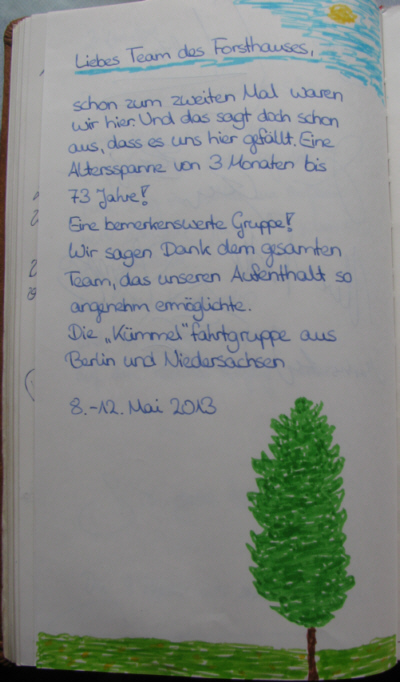 Liebes Team des Forsthauses,
schon zum zweiten Mal waren
wir hier. Und das sagt doch schon
aus, dass es uns hier gefällt. Eine
Altersspanne von 3 Monaten bis
73 Jahre!
Eine bemerkenswerte Gruppe!
Wir sagen Dank dem gesamten
Team, das unseren Aufenthalt so
angenehm ermöglichte.
Die „Kümmel"fahrtgruppe aus
Berlin und Niedersachsen
8.-12. Mai 2013